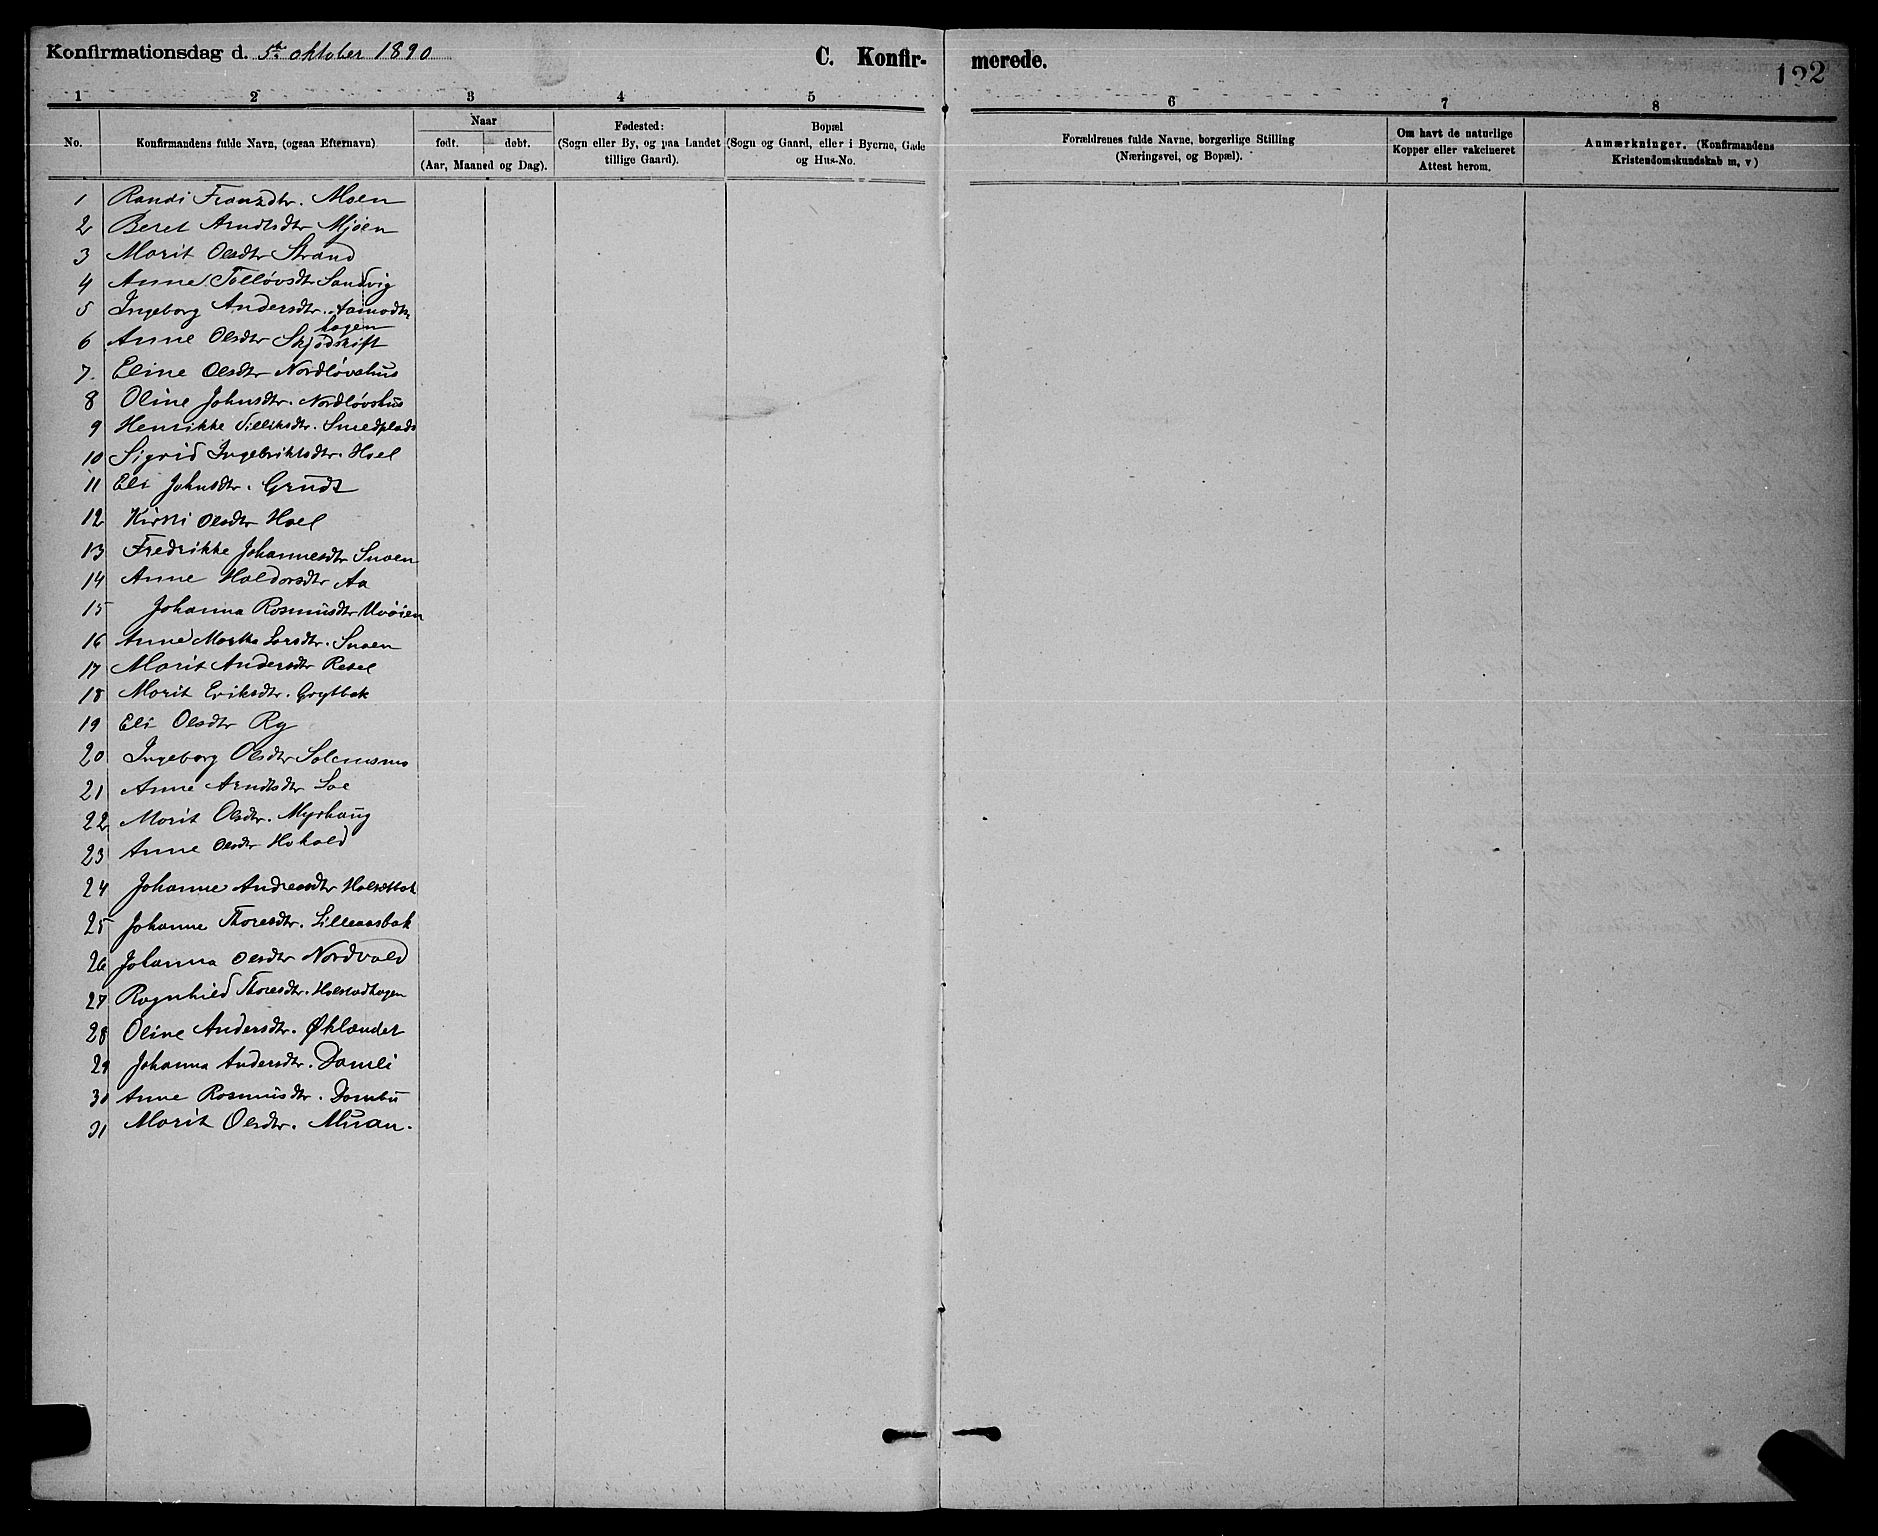 Konfirmationsdag d. 5te oktober 1890
C. Konfir- merede.
1 2 3 4 5 6 7 8
No.
Konfirmandens fulde Navn, (ogsaa Efternavn)
Naar
født. døbt.
(Aar, Maaned og Dag).
Fødested:
(Sogn eller By, og paa Landet
tillige Gaard).
Bopæl
(Sogn og Gaard, eller i Byerne, Gade
og Hus-No.
Forældrenes fulde Navne, borgerlige Stilling
(Næringsvei, og Bopæl).
Om havt de naturlige
Kopper eller vakcineret
Attest herom.
Anmærkninger. (Konfirmandens
Kristendomskundskab m, v)
1 Randi Franzdtr. Moen
2 Beret Arndtsdtr Mjøen
3 Marit Olsdtr Strand
4 Anne Tølløvsdtr Sandvig
5 Ingeborg Andersdtr.
hagen
6 Anne Olsdtr Skjødskift
7. Eline Olsdtr Nordløvshus
8 Oline Johnsdtr. Nordløvshus
9 Henrikke Smedplads
10 Sigrid Ingebriktsdtr. Hoel
11 Eli Johnsdtr. Grudt
12 Kirsti Olsdtr Hoel
13 Fredrikke Johannesdtr Snoen
14 Anne Haldorsdtr Aa
15 Johanna Rasmusdtr
16 Anne Martha Larsdtr. Snoen
17 Marit Andersdtr Resel
18 Marit Eriksdtr. Grytbak
19 Eli Olsdtr Ry
20 Ingeborg Olsdtr Solemsmo
21 Anne Arndtsdtr Loe
22 Marit Olsdtr. Myrhaug
23 Anne Olsdtr
24 Johanne Andreasdtr
25 Johanne Thoresdtr. Lilleaasbak
26 Johanna Olsdtr Nordvald
27 Ragnhild Thoresdtr. Holstadhagen
28 Oline Andersdtr. Øklandet
29 Johanna Andersdtr. Damli
30 Anne Rasmusdtr. Dambu
31 Marit Olsdtr. Muan.